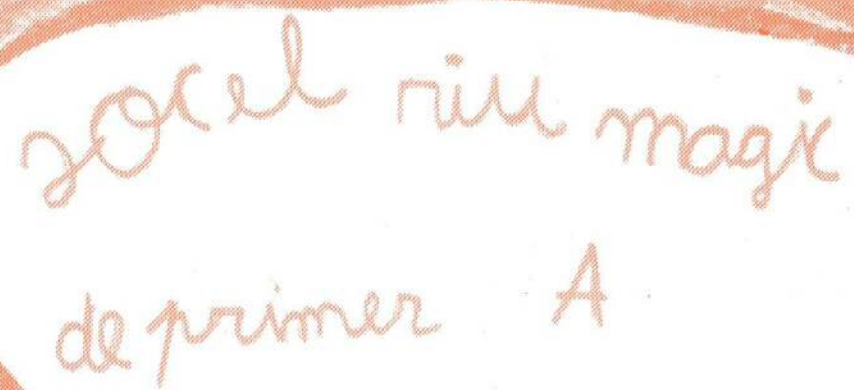 sOc el riu magic
de primer A